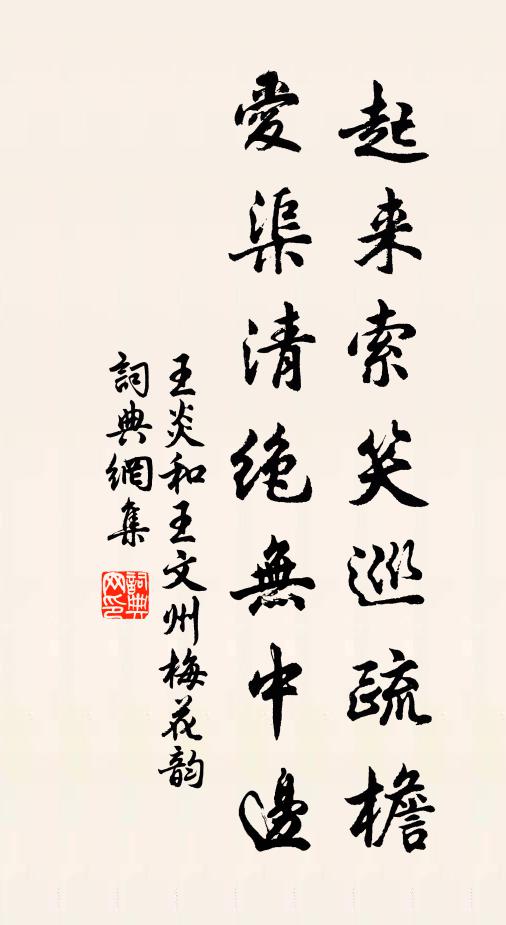 起来索笑巡疏檐
愛渠清絶無中邊
王炎和王文州梅花韵
詞典網集
詞典网印